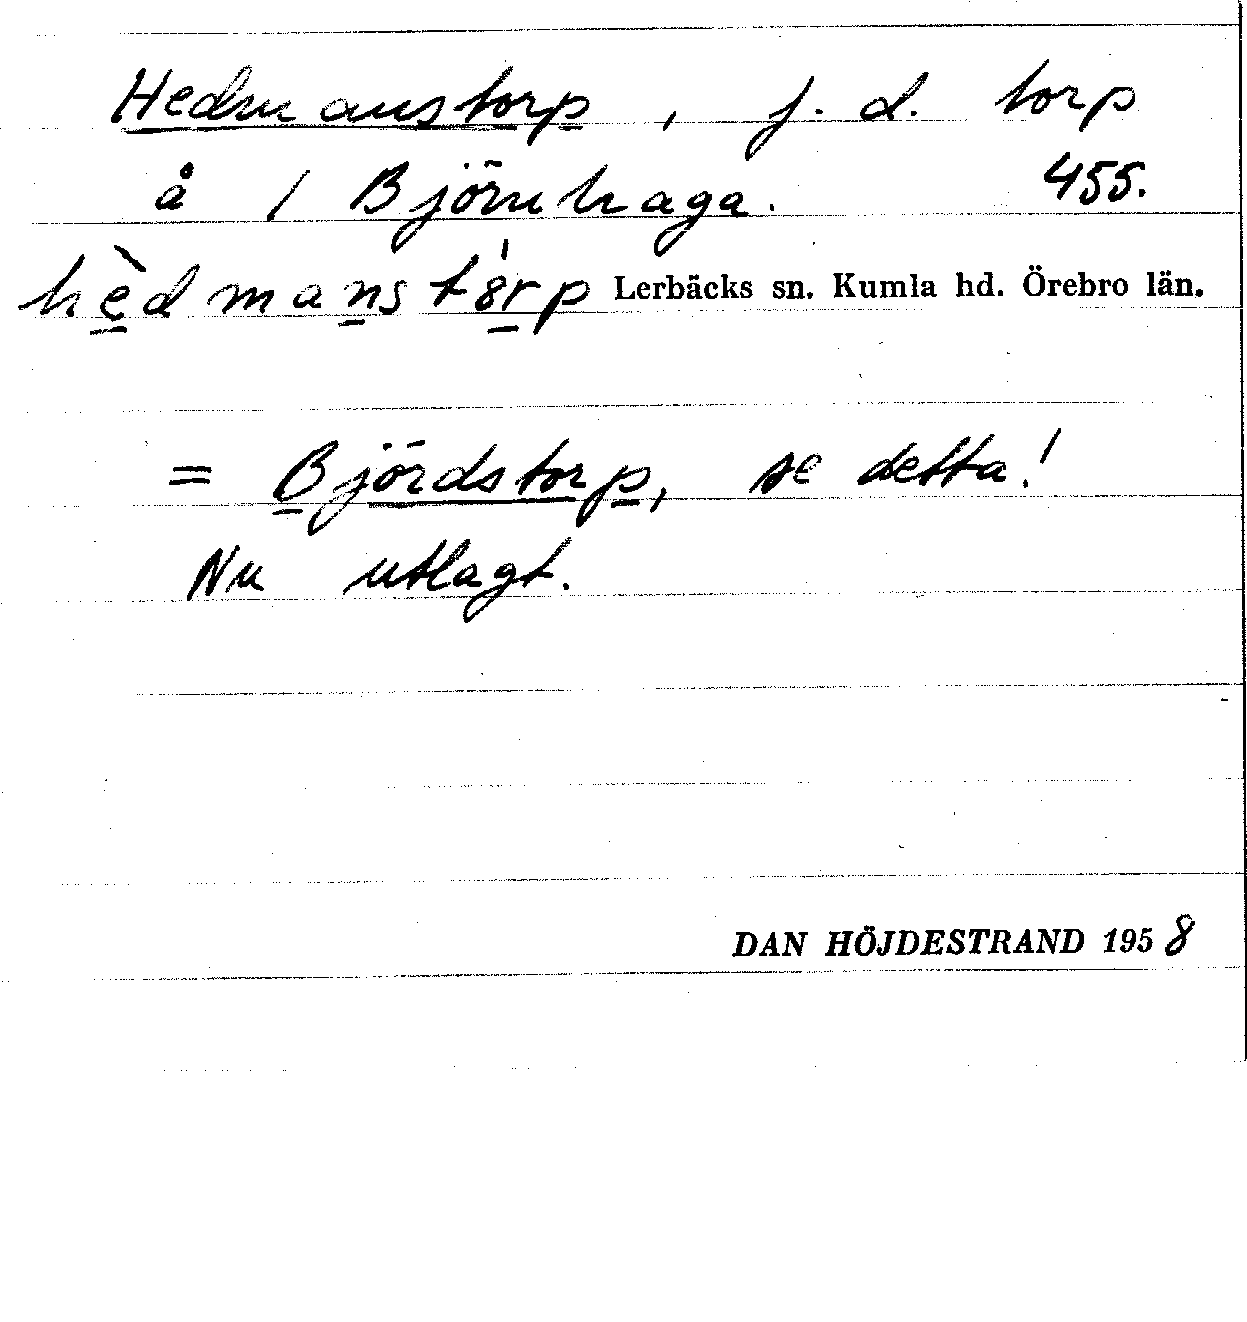 Hedmanstorp, f. d. torp
å 1 Björnhaga. 455.
hèdmanstórp Lerbäcks sn. Kumla hd. Örebro län.
= Björdstorp, se detta!
Nu utlagt.
DAN HÖJDESTRAND 1958